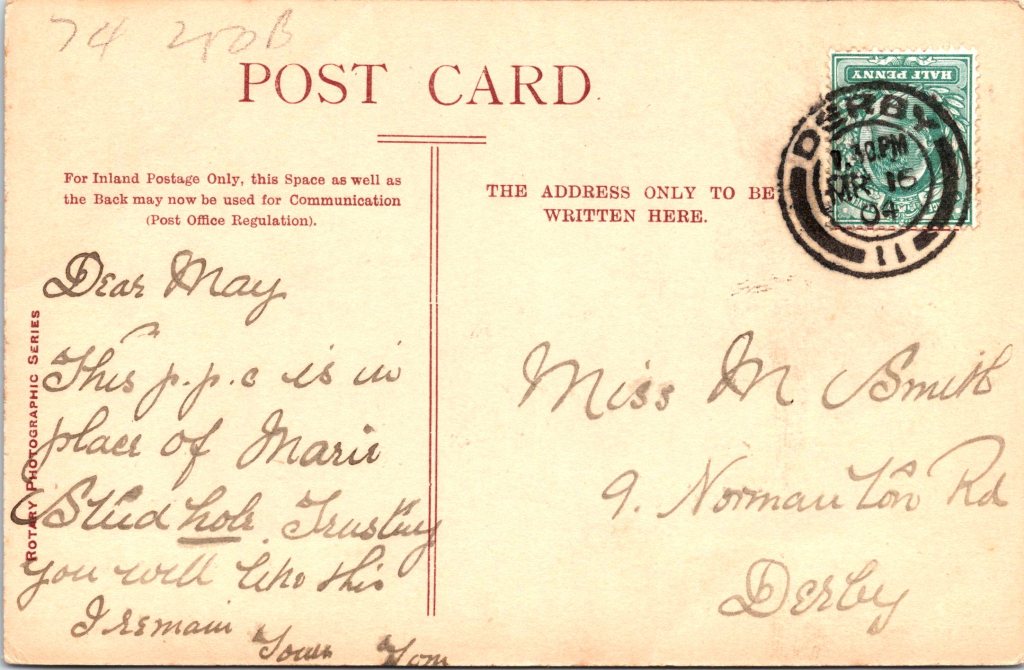 74
POST CARD
HALF PENNY
DERBY
MR 16
04
11
For Inland Postage Only, this Space as well as
the Back may now be used for Communication
(Post Office Regulation).
THE ADDRESS ONLY TO BE
WRITTEN HERE.
ROTARY PHOTOGRAPHIC SERIES
Dear May
This p.p.c is in
place of Marie
Studhole. Trusting
you will like this
I remain
Yours Tom
Miss M Smith
9. Normanton Rd
Derby